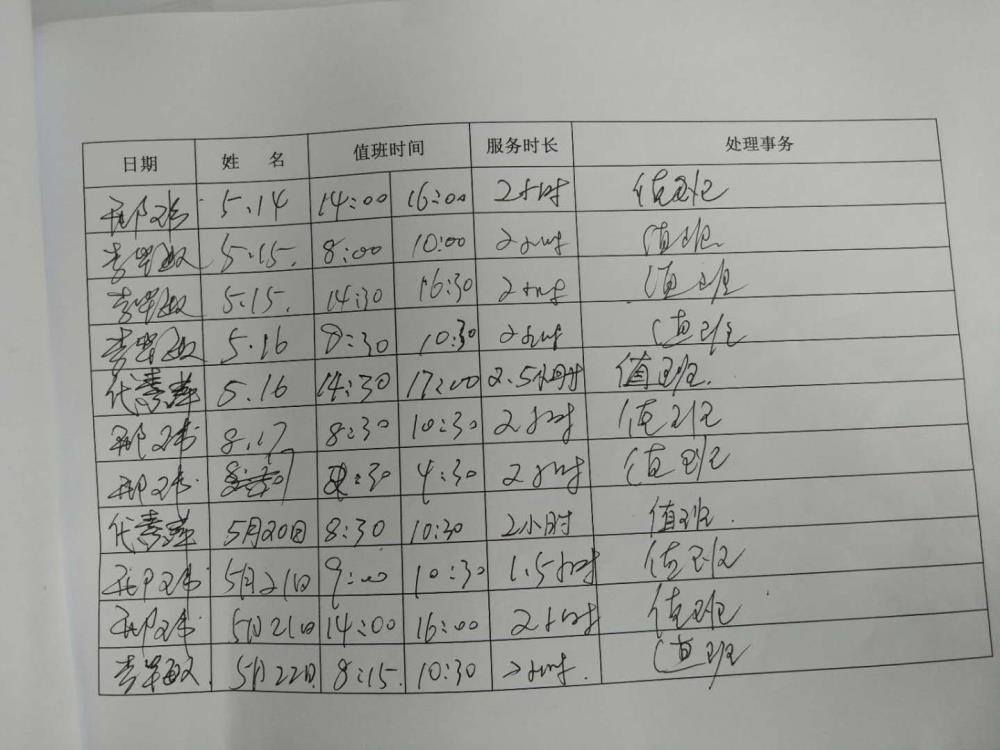 日期 姓 名 值班时间 服务时长 处理事务
5.14 14:00 16:00 2小时 值班
5.15. 8:00 10:00 2小时 值班
5.15. 14:30 16:30 2小时 值班
5.16 8:30 10:30 2小时 值班
代 5.16 14:30 17:00 2.5小时 值班.
8.17 8:30 10:30 2小时 值班
:30 4:30 2小时 值班
代 5月20日 8:30 10:30 2小时 值班.
5月21日 9:00 10:30 1.5小时 值班
5月21日 14:00 16:00 2小时 值班
5月22日 8:15. 10:30 2小时. 值班